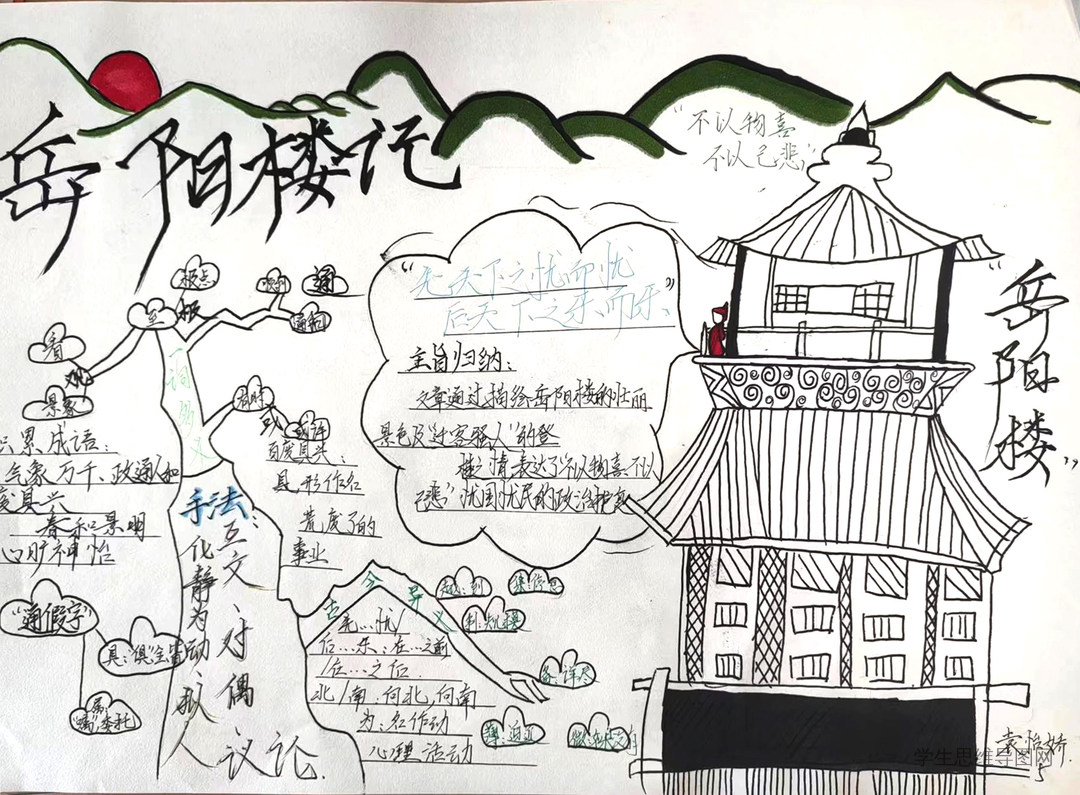 岳阳楼记
"不以物喜
不以己悲"
"先天下之忧而忧
后天下之乐而乐"
主旨归纳：
文章通过描绘岳阳楼的壮丽
景色及"迁客骚人"的登
楼之情表达了"不以物喜不以
己悲"忧国忧民的政治抱负
"岳
阳
楼"
极点
极
至
通
看
观
景象
一词多义
或许
或
累成语：
气象万千、政通人和
具兴
春和景明
心旷神怡
百废具兴：
具，形作名
荒废了的
事业
手法：
互文、对偶
化静为动、拟人
议论.
"通假字"
具："俱"全、皆
属："嘱"委托
古今异义
先…忧/
后…乐：在…之前
/在…之后.
北/南：向北，向南
为：名作动
心理活动
备：详尽
薄：迫近
袁怡婷.
5
学生思维导图网